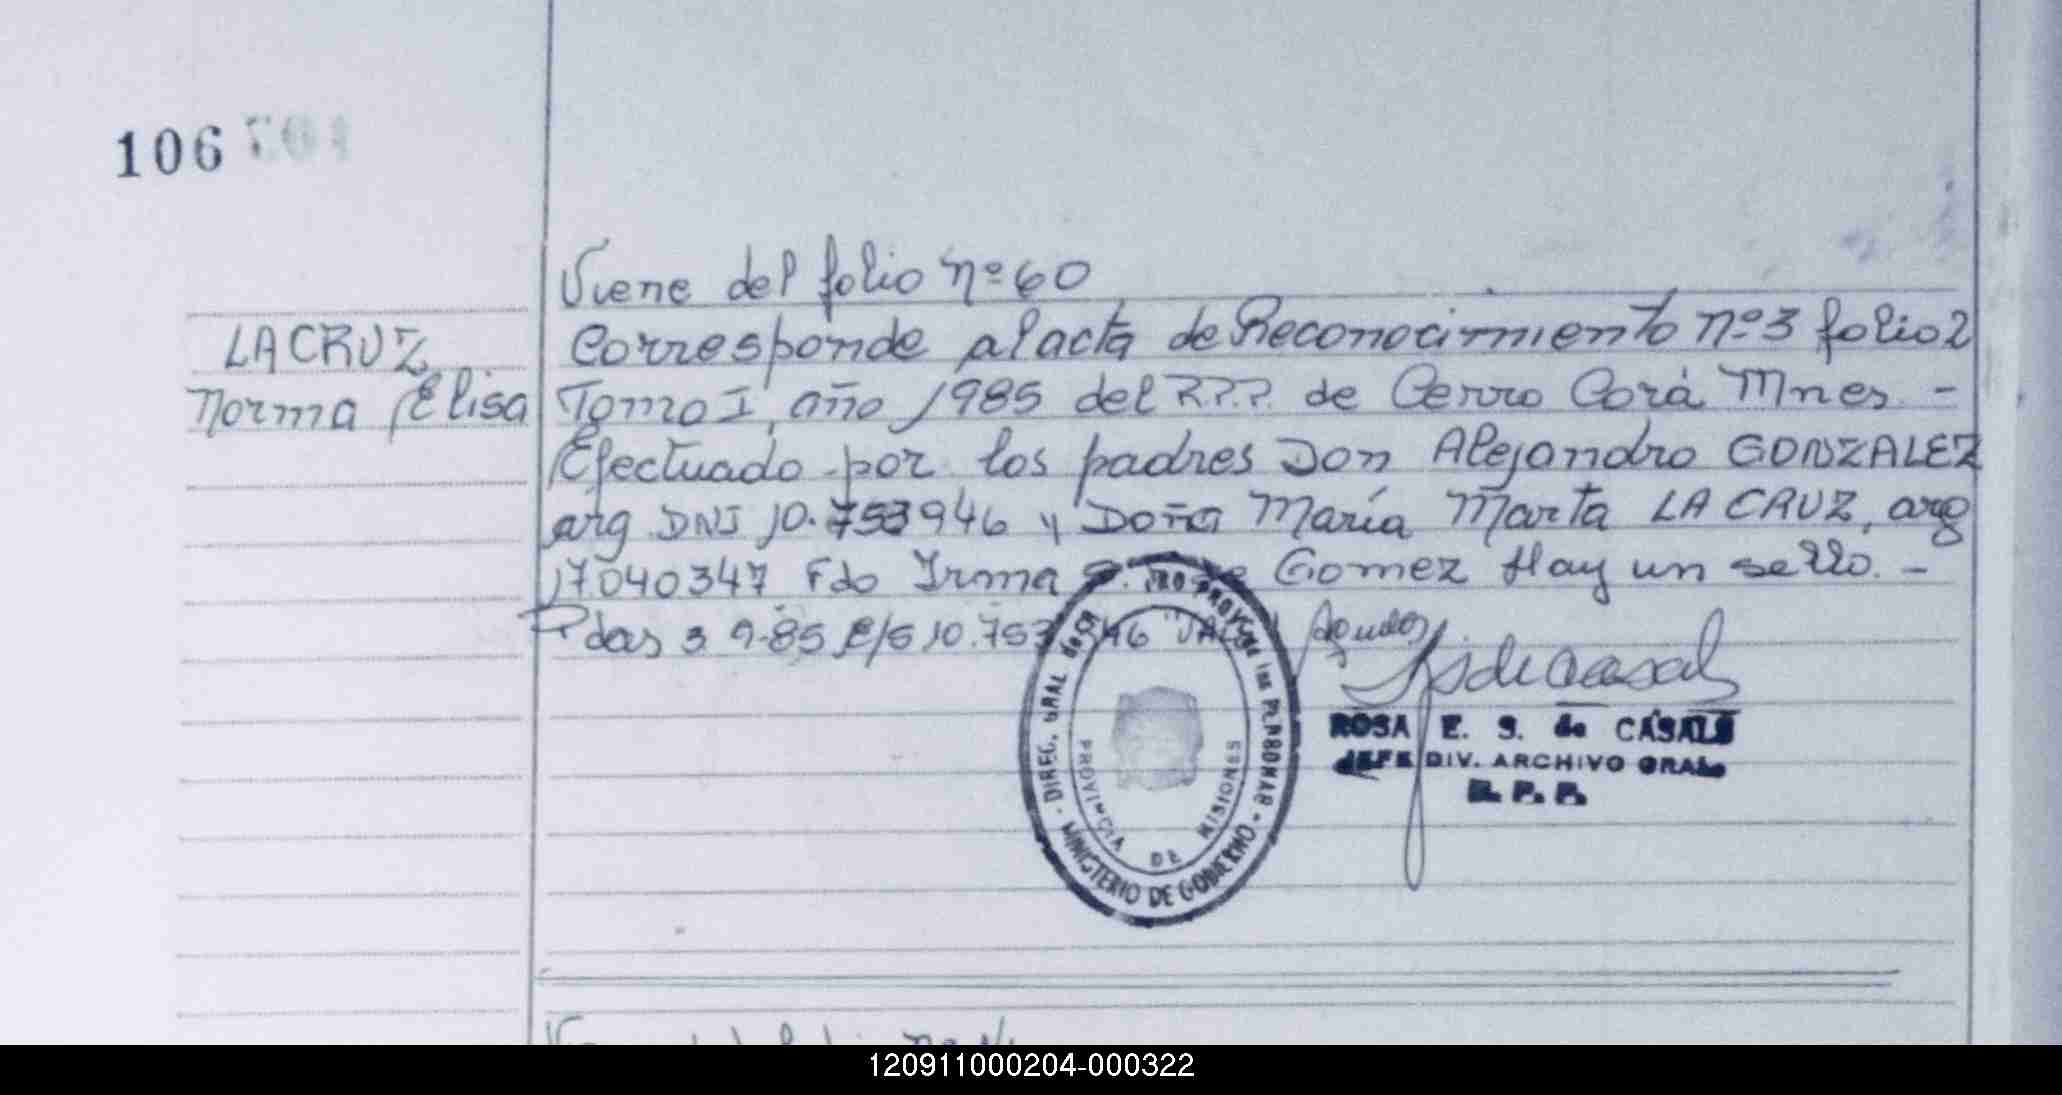 106
Viene del folio nº 60
LA CRUZ
Corresponde al acta de Reconocimiento nº 3 folio 2
Norma Elisa
Tomo I, año 1985 del R.P.P. de Cerro Corá Mnes. -
Efectuado por los padres Don Alejandro GONZALEZ
arg DNI 10.753946 y Doña María Marta LA CRUZ, arg
17040347 Fdo Irma Gomez Hay un sello. -
Pdas 3 9-85 E/S 10.753
ROSA E. S. de CASALS
JEFE DIV. ARCHIVO GRAL
R. P. P.
DIREC. GRAL
MINISTERIO DE GOBIERNO
PROVINCIA DE MISIONES
120911000204-000322